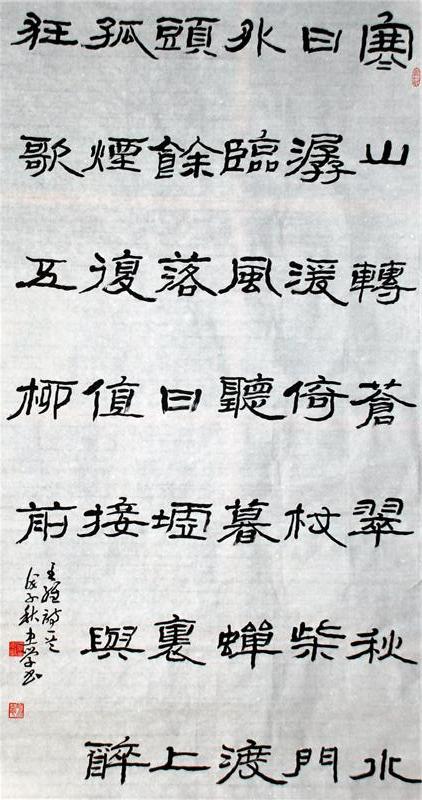 寒山轉蒼翠秋水
日潺湲倚杖柴門
外臨風聽暮蟬渡
頭餘落日墟裏上
孤煙復值接與醉
狂歌五柳前
王維詩一首
戊子秋